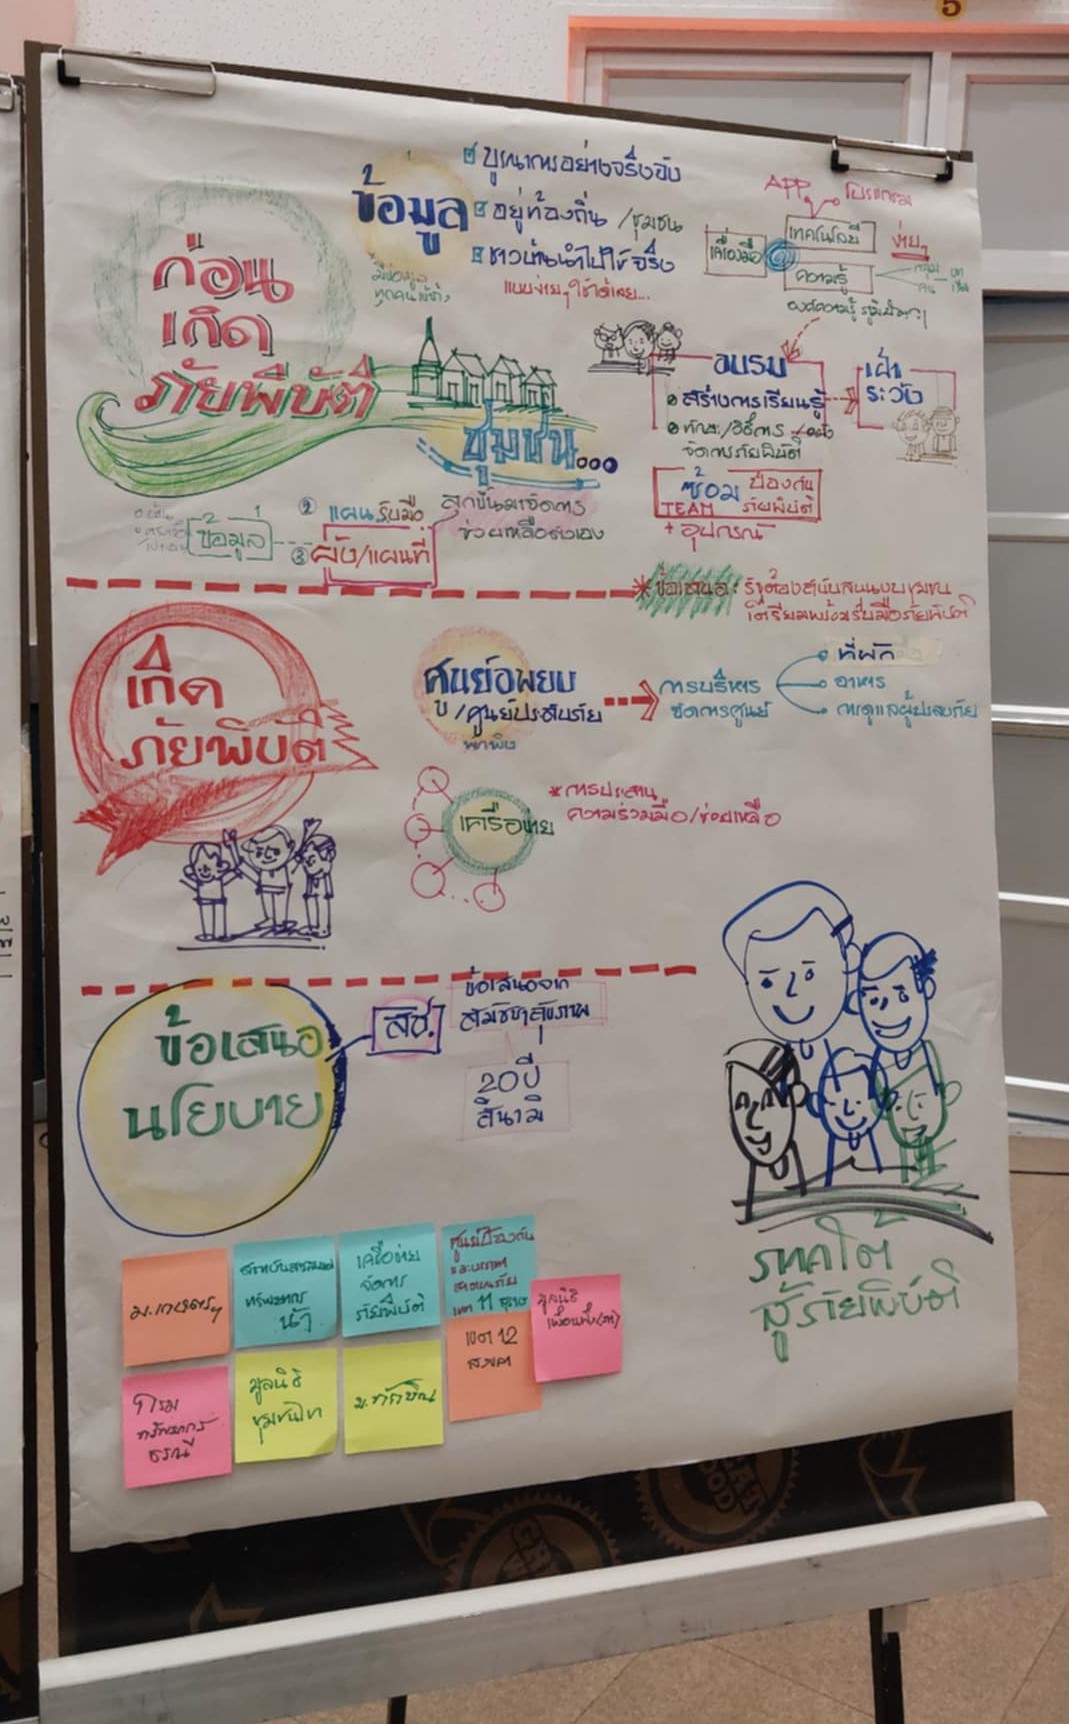 5
ก่อน
เกิด
ภัยพิบัติ
ข้อมูล
บูรณาการอย่างจริงจัง
อยู่ท้องถิ่น /ชุมชน
ชาวบ้านนำไปใช้จริง
แบบง่ายๆ ใช้ได้เลย...
มีข้อมูล
APP
โปรแกรม
เครื่องมือ
เทคโนโลยี
ง่ายๆ
ความรู้
องค์ความรู้
ชุมชน...
อบรม
สร้างการเรียนรู้
จัดการภัยพิบัติ
เฝ้า
ระวัง
ซ้อม
TEAM
ป้องกัน
ภัยพิบัติ
+ อุปกรณ์
ข้อมูล
② แผนรับมือ
③ ผัง/แผนที่
ลุกขึ้นมาจัดการ
ช่วยเหลือตัวเอง
ข้อเสนอ : รัฐต้องสนับสนุนงบชุมชน
เตรียมพร้อมรับมือภัยพิบัติ
เกิด
ภัยพิบัติ
ศูนย์อพยบ
/ศูนย์ประสบภัย
พักพิง
การบริหาร
จัดการศูนย์
ที่พัก
อาหาร
การดูแลผู้ประสบภัย
เครือข่าย
* การประสาน
ความร่วมมือ/ช่วยเหลือ
ข้อเสนอ
นโยบาย
สช.
ข้อเสนอจาก
สมัชชาสุขภาพ
20 ปี
สึนามิ
ม.เกษตรฯ
เครือข่าย
จัดการ
ภัยพิบัติ
ศูนย์ป้องกัน
และบรรเทา
สาธารณภัย
เขต 11
เขต 12
มูลนิธิ
กรม
ทรัพยากร
ธรณี
มูลนิธิ
ชุมชนไท
ม.ทักษิณ
รทคใต้
สู้ภัยพิบัติ